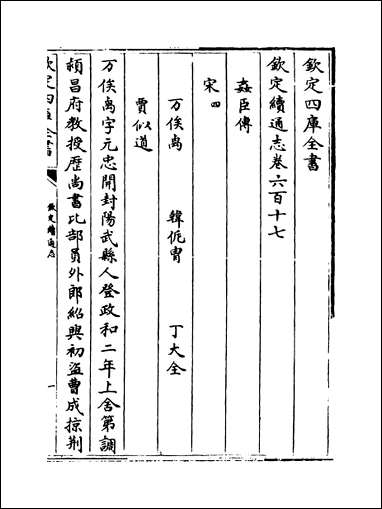 欽定四庫全書
欽定續通志卷六百十七
姦臣傳
宋四
万俟卨　韓侂胄　丁大全
賈似道
万俟卨字元忠開封陽武縣人登政和二年上舍第調
潁昌府教授歷尚書比部員外郎紹興初盜曹成掠荆
欽定四庫全書
欽定續通志
一